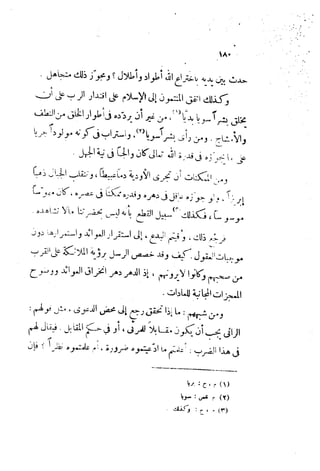 ١٨٠
حدث بين يديه باختراع الله أطواد وأطلال؟ ومجوز ذلك متجاهل.
وكذلك اتفق المنتمون إلى الإسلام على اقتدار الرب على أن
يخلق بشراً سويا بديًا(١)، من غير أن يردّده في أطوار الخلق من النطف
والأمشاج. ومن رأى بشراً سويا(٢)، واستراب في كونه مولوداً جريا
على ما يجوزه في قدرة الله تعالى كان والجًا في تيه الجهل.
ومن الممكنات أن تجري الأودية دماً عبيطًا، وتنقلب الجبال ذهباً
إبريزاً. ولو جوزه عاقل في دهره وقدره ممكنًا في عصره، كان مهوسا
موسوسا، فكذلك(٣) سبيل القطع بأنه ليس بحضرتنا ما لا نشاهده.
فرجع ذلك، وقيتم البدع، إلى استقرار العوائد واستمرارها دون
موجبات العقول. كيف وقد خصص الرسل برؤية الملائكة على القرب
من صحبهم وكانوا لا يرونهم، إذ الدهر دهر انخراق العوائد ووضوح
المعجزات المجانبة للعادات.
ومن شبههم: ما إذا تحقق رجع إلى محض الدعوى، مثل قولهم:
الرائي يجب أن يكون مقابلاً للمرئي، أو في حكم المقابل. فيقال لهم
في هذا الضرب: أعلمتم ما ادّعيتموه ضرورة، أم علمتموه نظراً؟ فإن
(١) م، ح: بريا
(٢) م نقص: سويا
(٣) م، ح: وكذلك.